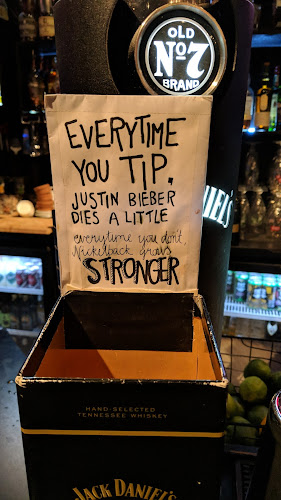 OLD
No7
BRAND
EVERYTIME
YOU TIP,
JUSTIN BIEBER
DIES A LITTLE
everytime you don't
Nickelback grows
STRONGER
IEL'S
HAND-SELECTED
TENNESSEE WHISKEY
JACK DANIEL'S